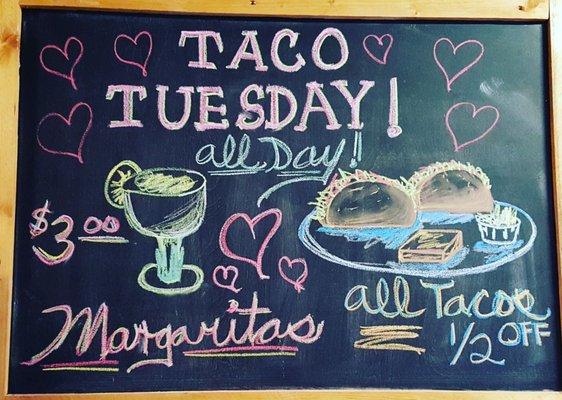 TACO
TUESDAY!
all Day!
$3.00
Margaritas
all Tacos
1/2 OFF